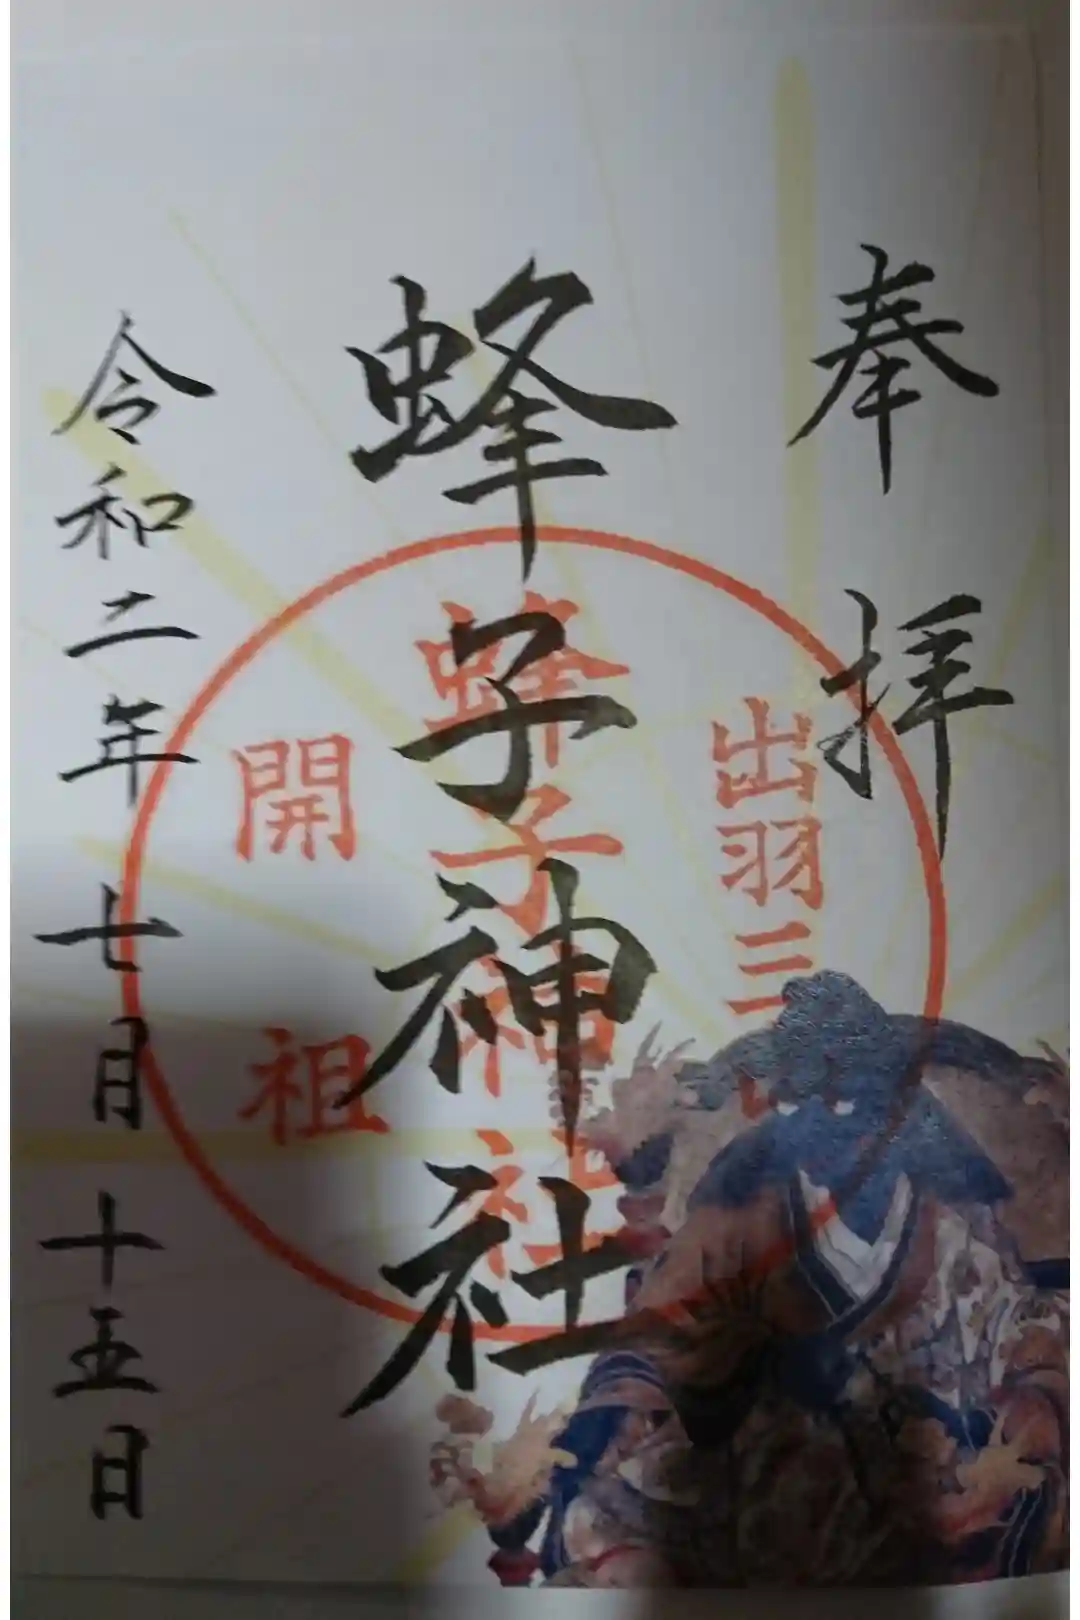 奉拝
出羽三山
蜂子神社
蜂子神社
開祖
令和二年七月十五日